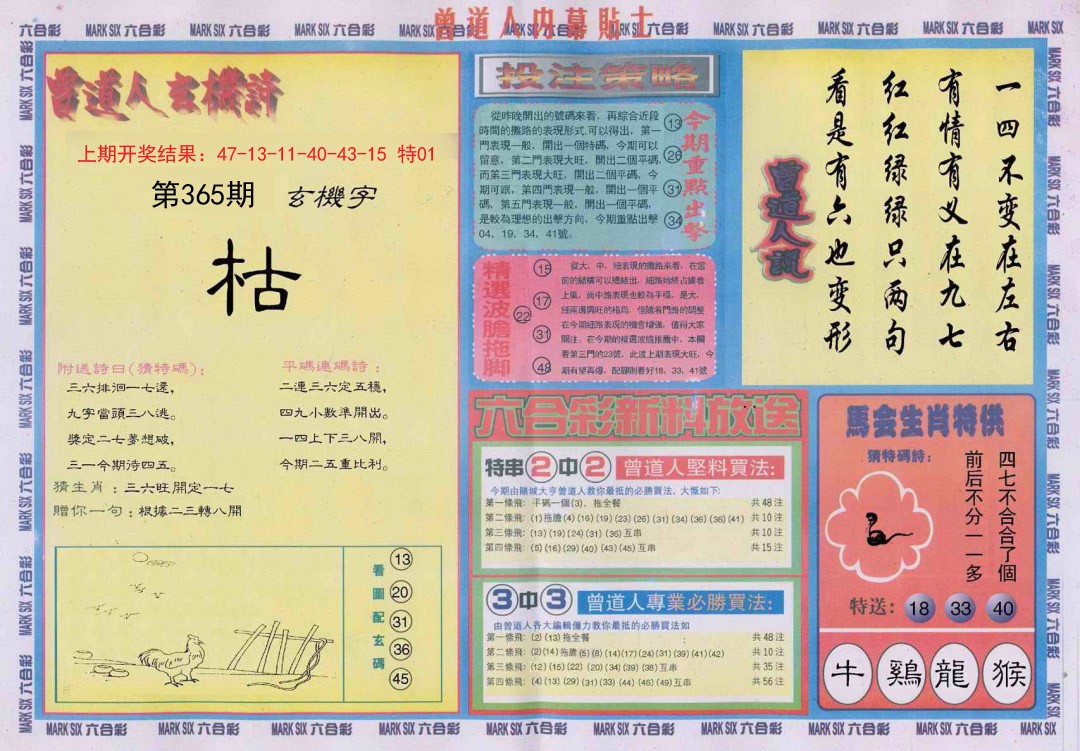 曾道人内幕貼士
MARK SIX 六合彩 MARK SIX 六合彩 MARK SIX 六合彩 MARK SIX 六合彩
曾道人玄機詩
上期开奖结果：47-13-11-40-43-15 特01
第365期 玄機字
枯
附送詩曰(猜特碼)：
三六排徊一七還，
九字當頭三八逃。
獎定二七夢想破，
三一今期待四五。
猜生肖：三六旺開定一七
贈你一句：根據二三轉八開
平碼連碼詩：
二連三六定五穩，
四九小數準開出。
一四上下三八開，
今期二五重比利。
看圖配玄碼
13
20
31
36
45
投注策略
從昨晚開出的號碼來看，再綜合近段
時間的攤路的表現形式,可以得出，第一
門表現一般，開出一個特碼，今期可以
留意，第二門表現大旺，開出二個平碼，
而第三門表現大旺，開出二個平碼，今
期可跟，第四門表現一般，開出一個平
碼，第五門表現一般，開出一個平碼，
是較為理想的出擊方向，今期重點出擊
04，19，34，41號。
13
26
31
34
今期重點出擊
精選波膽拖脚
15
17
22
31
48
從大、中、細表現的攤路來看，在當
前的結構可以總結出，細路始終占據着
上風，而中路表現也較為平穩，是大、
細兩邊興旺的格局，但隨着門路的調整
在今期細路表現的機會增強，值得大家
關注，在今期的精選波膽推薦中，本欄
看第三門的23號，此波上期表現大旺，今
期有望再爆，配腳則看好18、33、41號
一四不变在左右
有情有义在九七
红红绿绿只两句
看是有六也变形
曾道人說
六合彩新料放送
特串2中2 曾道人堅料買法：
今期由賭城大亨曾道人教你最抵的必勝買法，大慨如下：
第一條飛：平碼一個(3)，拖全餐 共48注
第二條飛：(1)拖膽(4)(16)(19)(23)(26)(31)(34)(36)(36)(41) 共10注
第三條飛：(13)(19)(24)(31)(36)互串 共10注
第四條飛：(5)(16)(29)(40)(43)(45)互串 共15注
3中3 曾道人專業必勝買法：
由曾道人各大編輯僱力教你最抵的必勝買法如 ：
第一條飛：(2)(13)拖全餐 共48注
第二條飛：(2)(14)拖膽(5)(8)(14)(17)(24)(31)(39)(41)(42) 共10注
第三條飛：(12)(15)(22)(20)(34)(39)(38)互串 共35注
第四條飛：(4)(13)(29)(31)(33)(44)(46)(49)互串 共56注
馬会生肖特供
猜特碼詩：
四七不合合了個
前后不分一一多
特送：18 33 40
牛 鷄 龍 猴
MARK SIX 六合彩 MARK SIX 六合彩 MARK SIX 六合彩 MARK SIX 六合彩